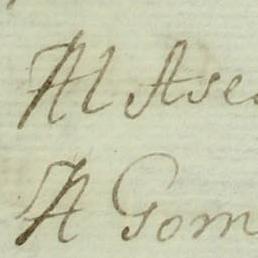 Al Ase
A Gom